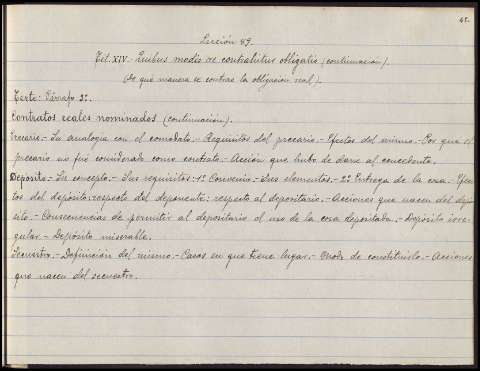 Lección 49.
Tit. XIV.- Quibus modis re contrahitur obligatio (continuación).
(De qué manera se contrae la obligación real).
Texto: Párrafo 3º.
Contratos reales nominados (continuación).
Precario.- Su analogía con el comodato.- Requisitos del precario.- Efectos del mismo.- Por qué el
precario no fué considerado como contrato.- Acción que hubo de darse al concedente.
Depósito.- Su concepto.- Sus requisitos: 1º Convenio.- Sus elementos.- 2º Entrega de la cosa.- Efec-
tos del depósito: respecto del deponente: respecto al depositario.- Acciones que nacen del depó-
sito.- Consecuencias de permitir al depositario el uso de la cosa depositada.- Depósito irre-
gular.- Depósito miserable.
Secuestro.- Definición del mismo.- Casos en que tiene lugar.- Modo de constituirlo.- Acciones
que nacen del secuestro.